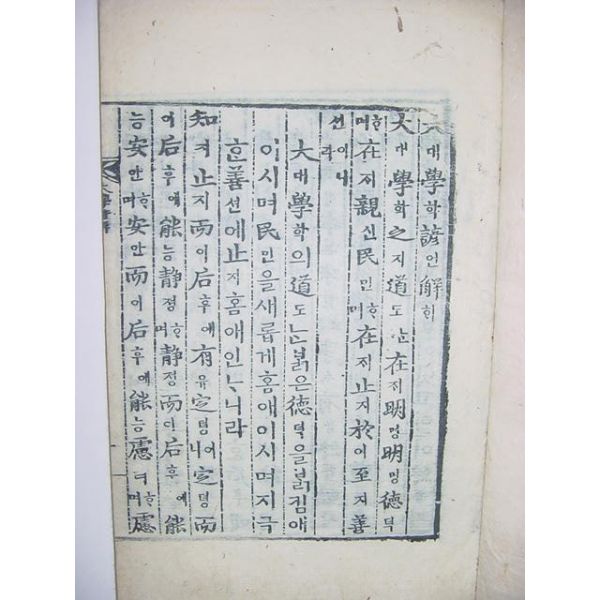 大대學학諺언解ᄒᆡ
大대學학之지道도ᄂᆞᆫ在ᄌᆡ明명明명德덕
ᄒᆞ며在ᄌᆡ親신民민ᄒᆞ며在ᄌᆡ止지於어至지善
션이니라
大대學학의道도ᄂᆞᆫᄇᆞᆰ은德덕을ᄇᆞᆰ킴애
이시며民민을새롭게홈애이시며지극
ᄒᆞᆫ善션에止지홈애인ᄂᆞ니라
知지止지而이后후에有유定뎡이니定뎡而
이后후에能능静졍ᄒᆞ며静졍而이后후에能
능安안ᄒᆞ며安안而이后후에能능慮려ᄒᆞ며慮